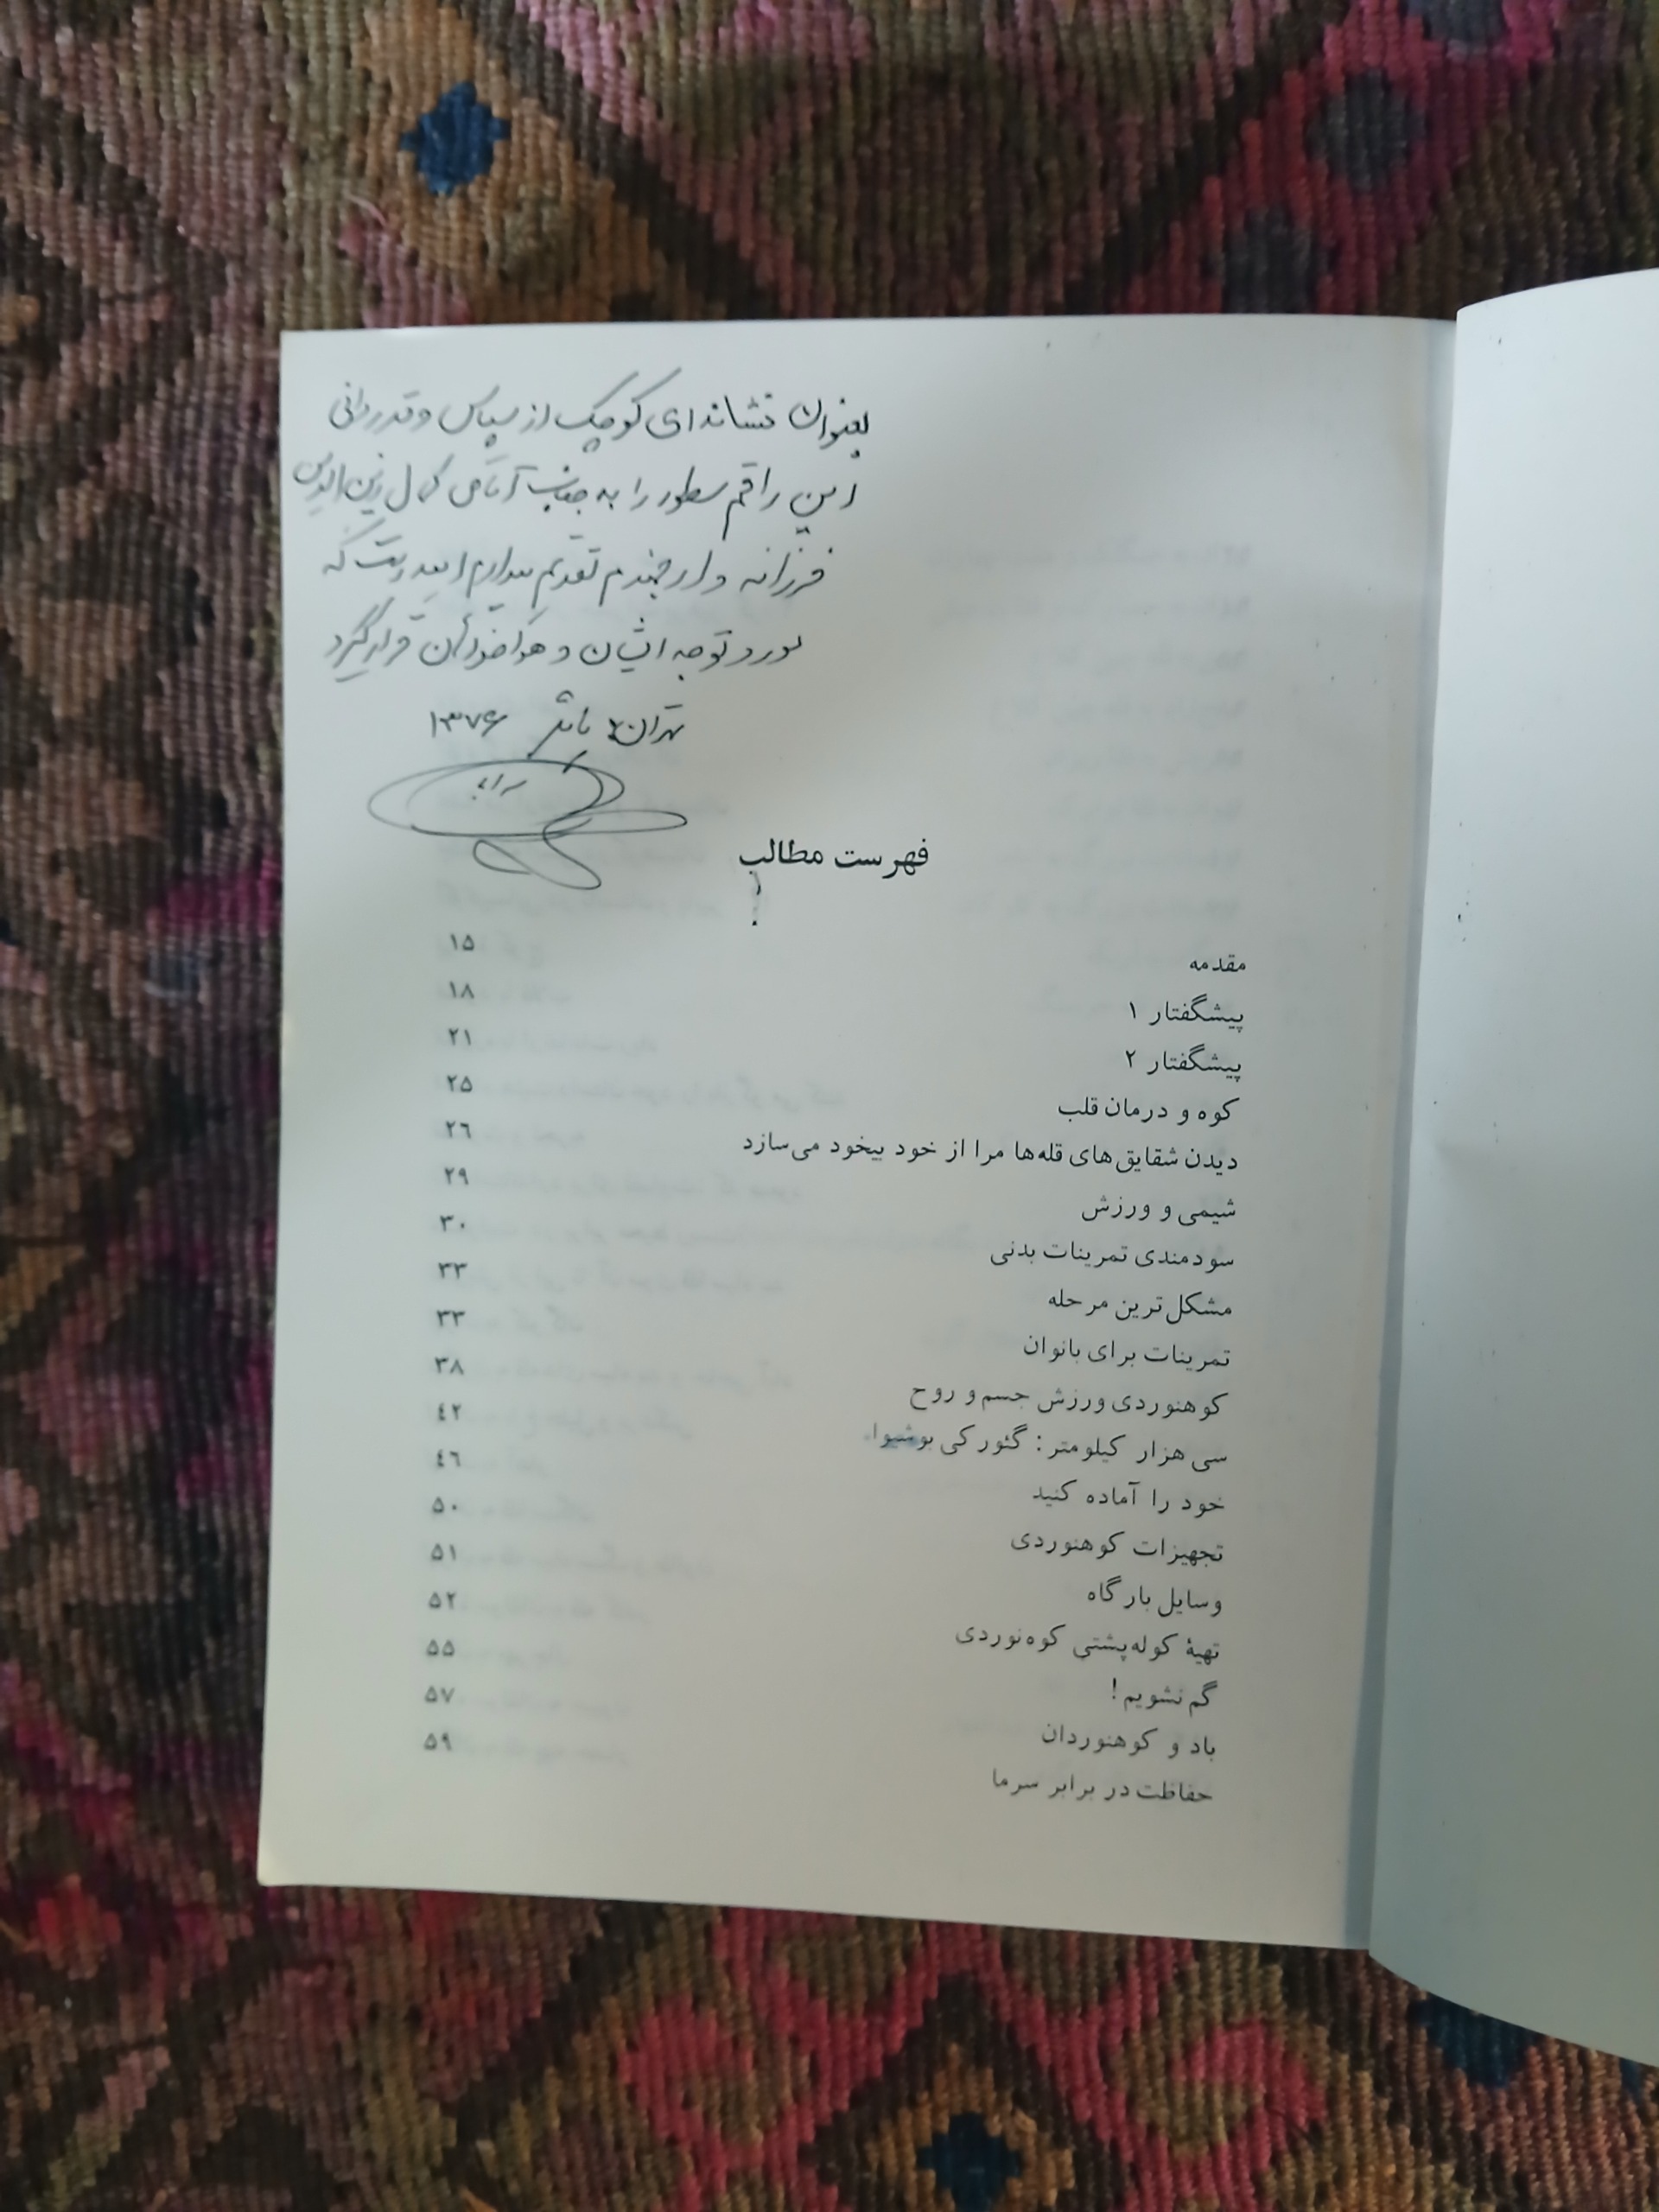 بعنوان نشانه‌ای کوچک از سپاس و قدردانی
این راقم سطور را به جناب آقای کمال زین‌الدین
فرزانه و ارجمندم تقدیم میدارم امید است که
مورد توجه ایشان و هواخواهان قرار گیرد
تهران پائیز ۱۳۷۶
فهرست مطالب
مقدمه ۱۵
پیشگفتار ۱ ۱۸
پیشگفتار ۲ ۲۱
کوه و درمان قلب ۲۵
دیدن شقایق‌های قله‌ها مرا از خود بیخود می‌سازد ۲۶
شیمی و ورزش ۲۹
سودمندی تمرینات بدنی ۳۰
مشکل‌ترین مرحله ۳۳
تمرینات برای بانوان ۳۳
کوهنوردی ورزش جسم و روح ۳۸
سی هزار کیلومتر: گئورکی بوشیوا. ٤۲
خود را آماده کنید ٤٦
تجهیزات کوهنوردی ۵۰
وسایل بارگاه ۵۱
تهیهٔ کوله‌پشتی کوه‌نوردی ۵۲
گم نشویم! ۵۵
باد و کوهنوردان ۵۷
حفاظت در برابر سرما ۵۹